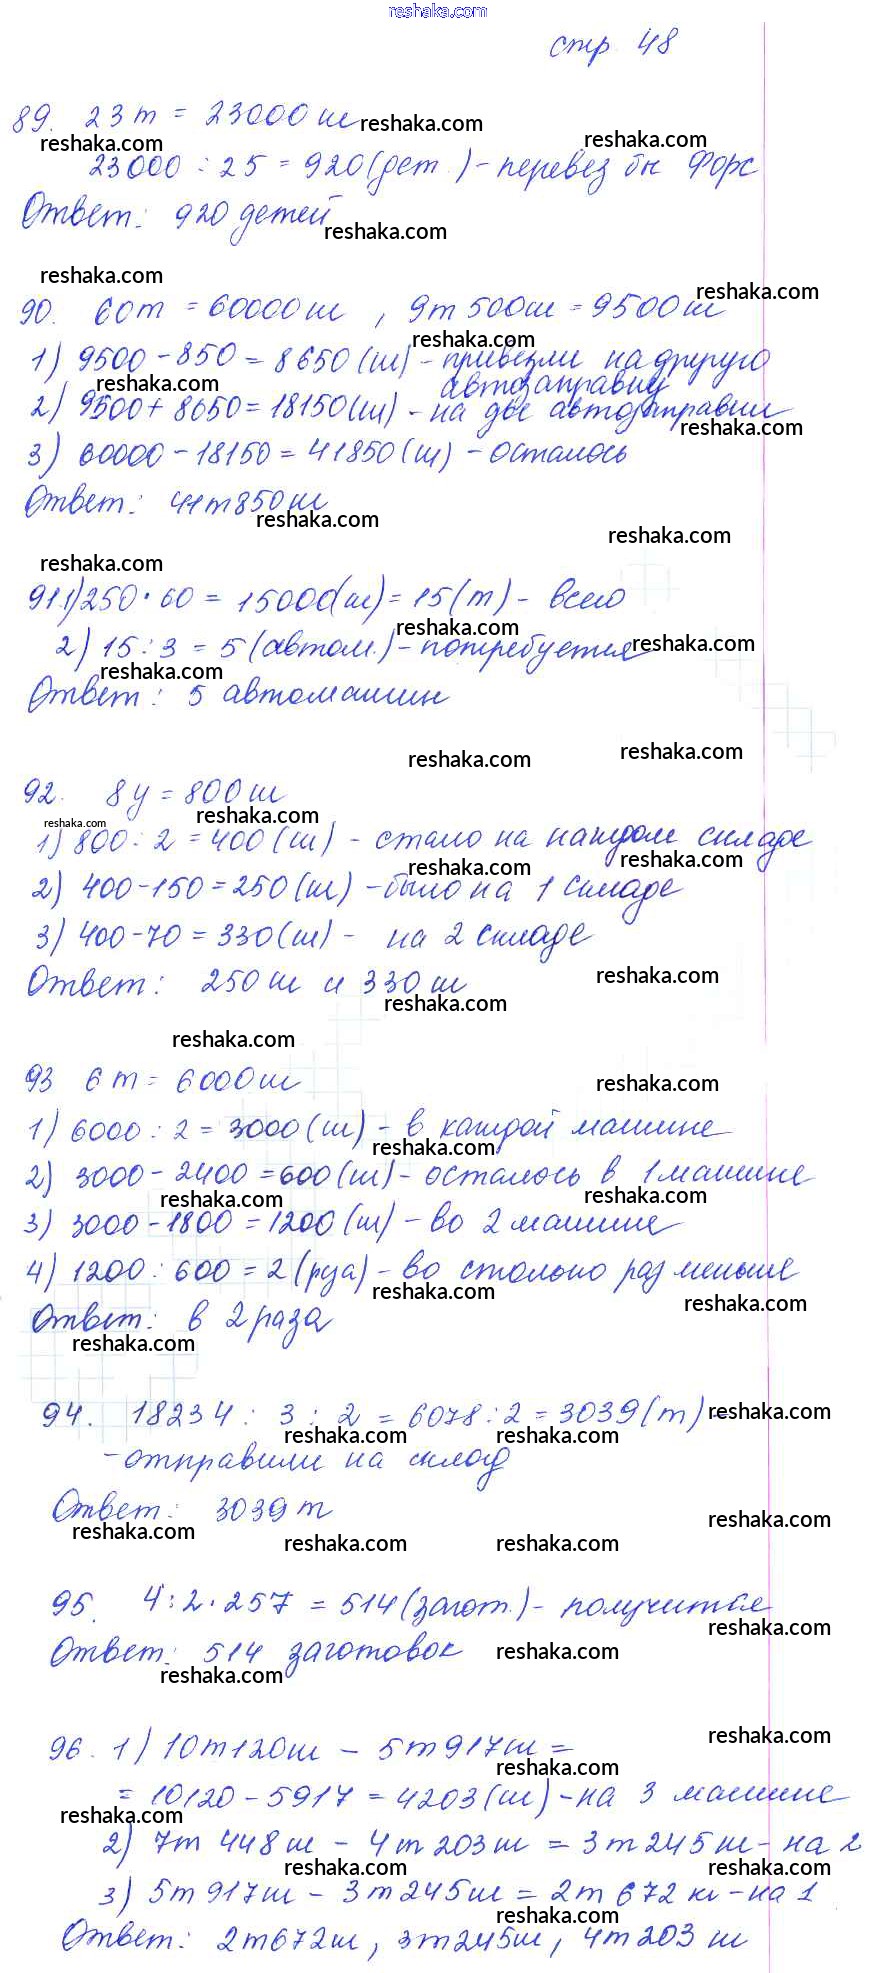 reshaka.com
стр. 48
89. 23 т = 23000 кг
23000 : 25 = 920 (дет.) - перевез бы Форс
Ответ: 920 детей
90. 60 т = 60000 кг, 9 т 500 кг = 9500 кг
1) 9500 - 850 = 8650 (кг) - привезли на другую автозаправку
2) 9500 + 8650 = 18150 (кг) - на две автозаправки
3) 60000 - 18150 = 41850 (кг) - осталось
Ответ: 41 т 850 кг
91. 1) 250 · 60 = 15000 (кг) = 15 (т) - всего
2) 15 : 3 = 5 (автом.) - потребуется
Ответ: 5 автомашин
92. 8 ц = 800 кг
1) 800 : 2 = 400 (кг) - стало на каждом складе
2) 400 - 150 = 250 (кг) - было на 1 складе
3) 400 - 70 = 330 (кг) - на 2 складе
Ответ: 250 кг и 330 кг
93 6 т = 6000 кг
1) 6000 : 2 = 3000 (кг) - в каждой машине
2) 3000 - 2400 = 600 (кг) - осталось в 1 машине
3) 3000 - 1800 = 1200 (кг) - во 2 машине
4) 1200 : 600 = 2 (руа) - во столько раз меньше
Ответ: в 2 раза
94. 18234 : 3 : 2 = 6078 : 2 = 3039 (т) -
- отправили на склад
Ответ: 3039 т
95. 4 : 2 · 257 = 514 (загот.) - получится
Ответ: 514 заготовок
96. 1) 10 т 120 кг - 5 т 917 кг =
= 10120 - 5917 = 4203 (кг) - на 3 машине
2) 7 т 448 кг - 4 т 203 кг = 3 т 245 кг - на 2
3) 5 т 917 кг - 3 т 245 кг = 2 т 672 кг - на 1
Ответ: 2 т 672 кг, 3 т 245 кг, 4 т 203 кг